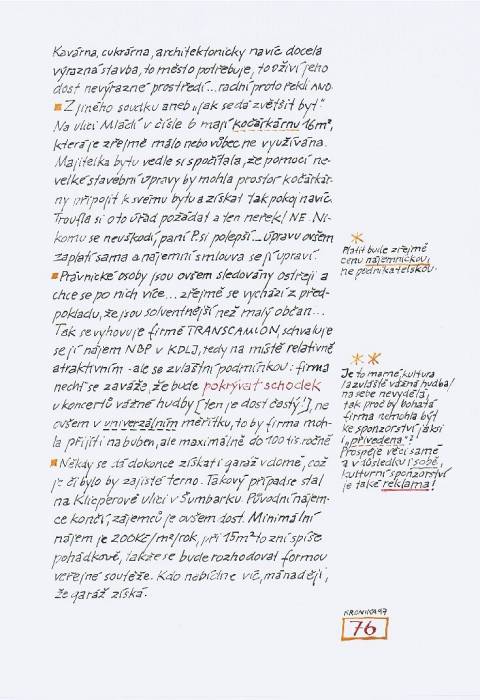 Kavárna, cukrárna, architektonicky navíc docela
výrazná stavba, to město potřebuje, to oživí jeho
dost nevýrazné prostředí... radní proto řekli ANO.
Z jiného soudku aneb „jak se dá zvětšit byt"
Na ulici Mládí v čísle 6 mají kočárkárnu 16m²,
která je zřejmě málo nebo vůbec ne využívána.
Majitelka bytu vedle si spočítala, že pomocí ne-
velké stavební úpravy by mohla prostor kočárkár-
ny připojit k svému bytu a získat tak pokoj navíc.
Troufla si o to úřad požádat a ten neřekl NE. Ni-
komu se neuškodí, paní P. si polepší... úpravu ovšem
zaplatí sama a nájemní smlouva se jí upraví.
Právnické osoby jsou ovšem sledovány ostřeji a
chce se po nich více... zřejmě se vychází z před-
pokladu, že jsou solventnější než malý občan...
Tak se vyhovuje firmě TRANSCAMION, schvaluje
se jí nájem NBP v KDLJ, tedy na místě relativně
atraktivním - ale se zvláštní podmínkou: firma
nechť se zaváže, že bude pokrývat schodek
u koncertů vážné hudby [ten je dost častý!], ne
ovšem v univerzálním měřítku, to by firma moh-
la přijít i na buben, ale maximálně do 100 tis. ročně
Někdy se dá dokonce získat i garáž v domě, což
je či bylo by zajisté terno. Takový případ se stal
na Klicperově ulici v Šumbarku. Původní nájem-
ce končí, zájemců je ovšem dost. Minimální
nájem je 200Kč/m²/rok, při 15m² to zní spíše
pohádkově, takže se bude rozhodoval formou
veřejné soutěže. Kdo nabídne víc, má naději,
že garáž získá.
*
Platit bude zřejmě
cenu nájemnickou,
ne podnikatelskou.
* *
Je to marné, kultura
/a zvláště vážná hudba/
na sebe nevydělá,
tak proč by bohatá
firma nemohla být
ke sponzorství jaksi
„přivedena"?
Prospěje věci samé
a v důsledku i sobě,
kulturní sponzorství
je také reklama!
KRONIKA 97
76